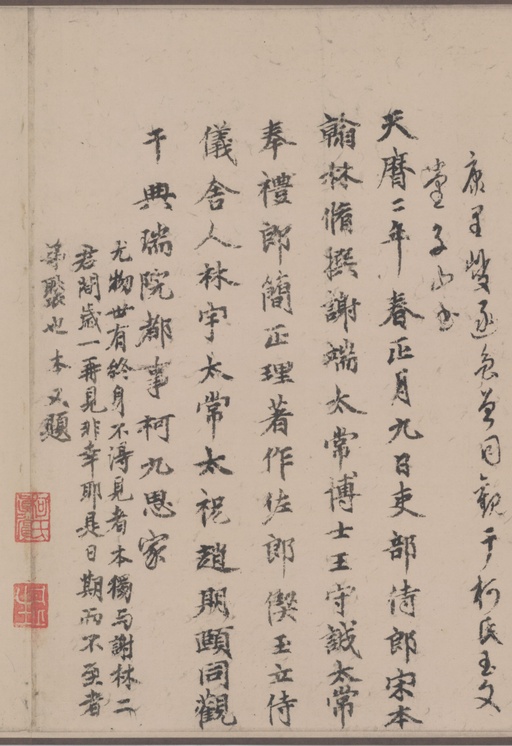 康里巎遂良曾同觀于柯氏玉文
堂子山書
天曆二年春正月九日吏部侍郎宋本
翰林脩撰謝端太常博士王守誠太常
奉禮郎簡正理著作佐郎偰玉立侍
儀舍人林宇太常太祝趙期頤同觀
于典瑞院都事柯九思家
尤物世有終身不淂見者本獨与謝林二
君閒歲一再見非幸耶是日期而不至者
也本又題
柯氏